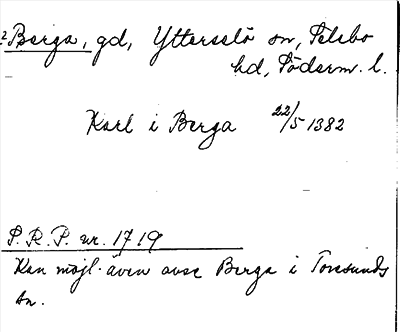 ² Berga, gd, Ytterselö sn, Selebo
hd, Söderm. l.
Karl i Berga 22/5 1382
S. R. P. nr. 1719
Kan möjl. även avse Berga i Toresunds
sn.